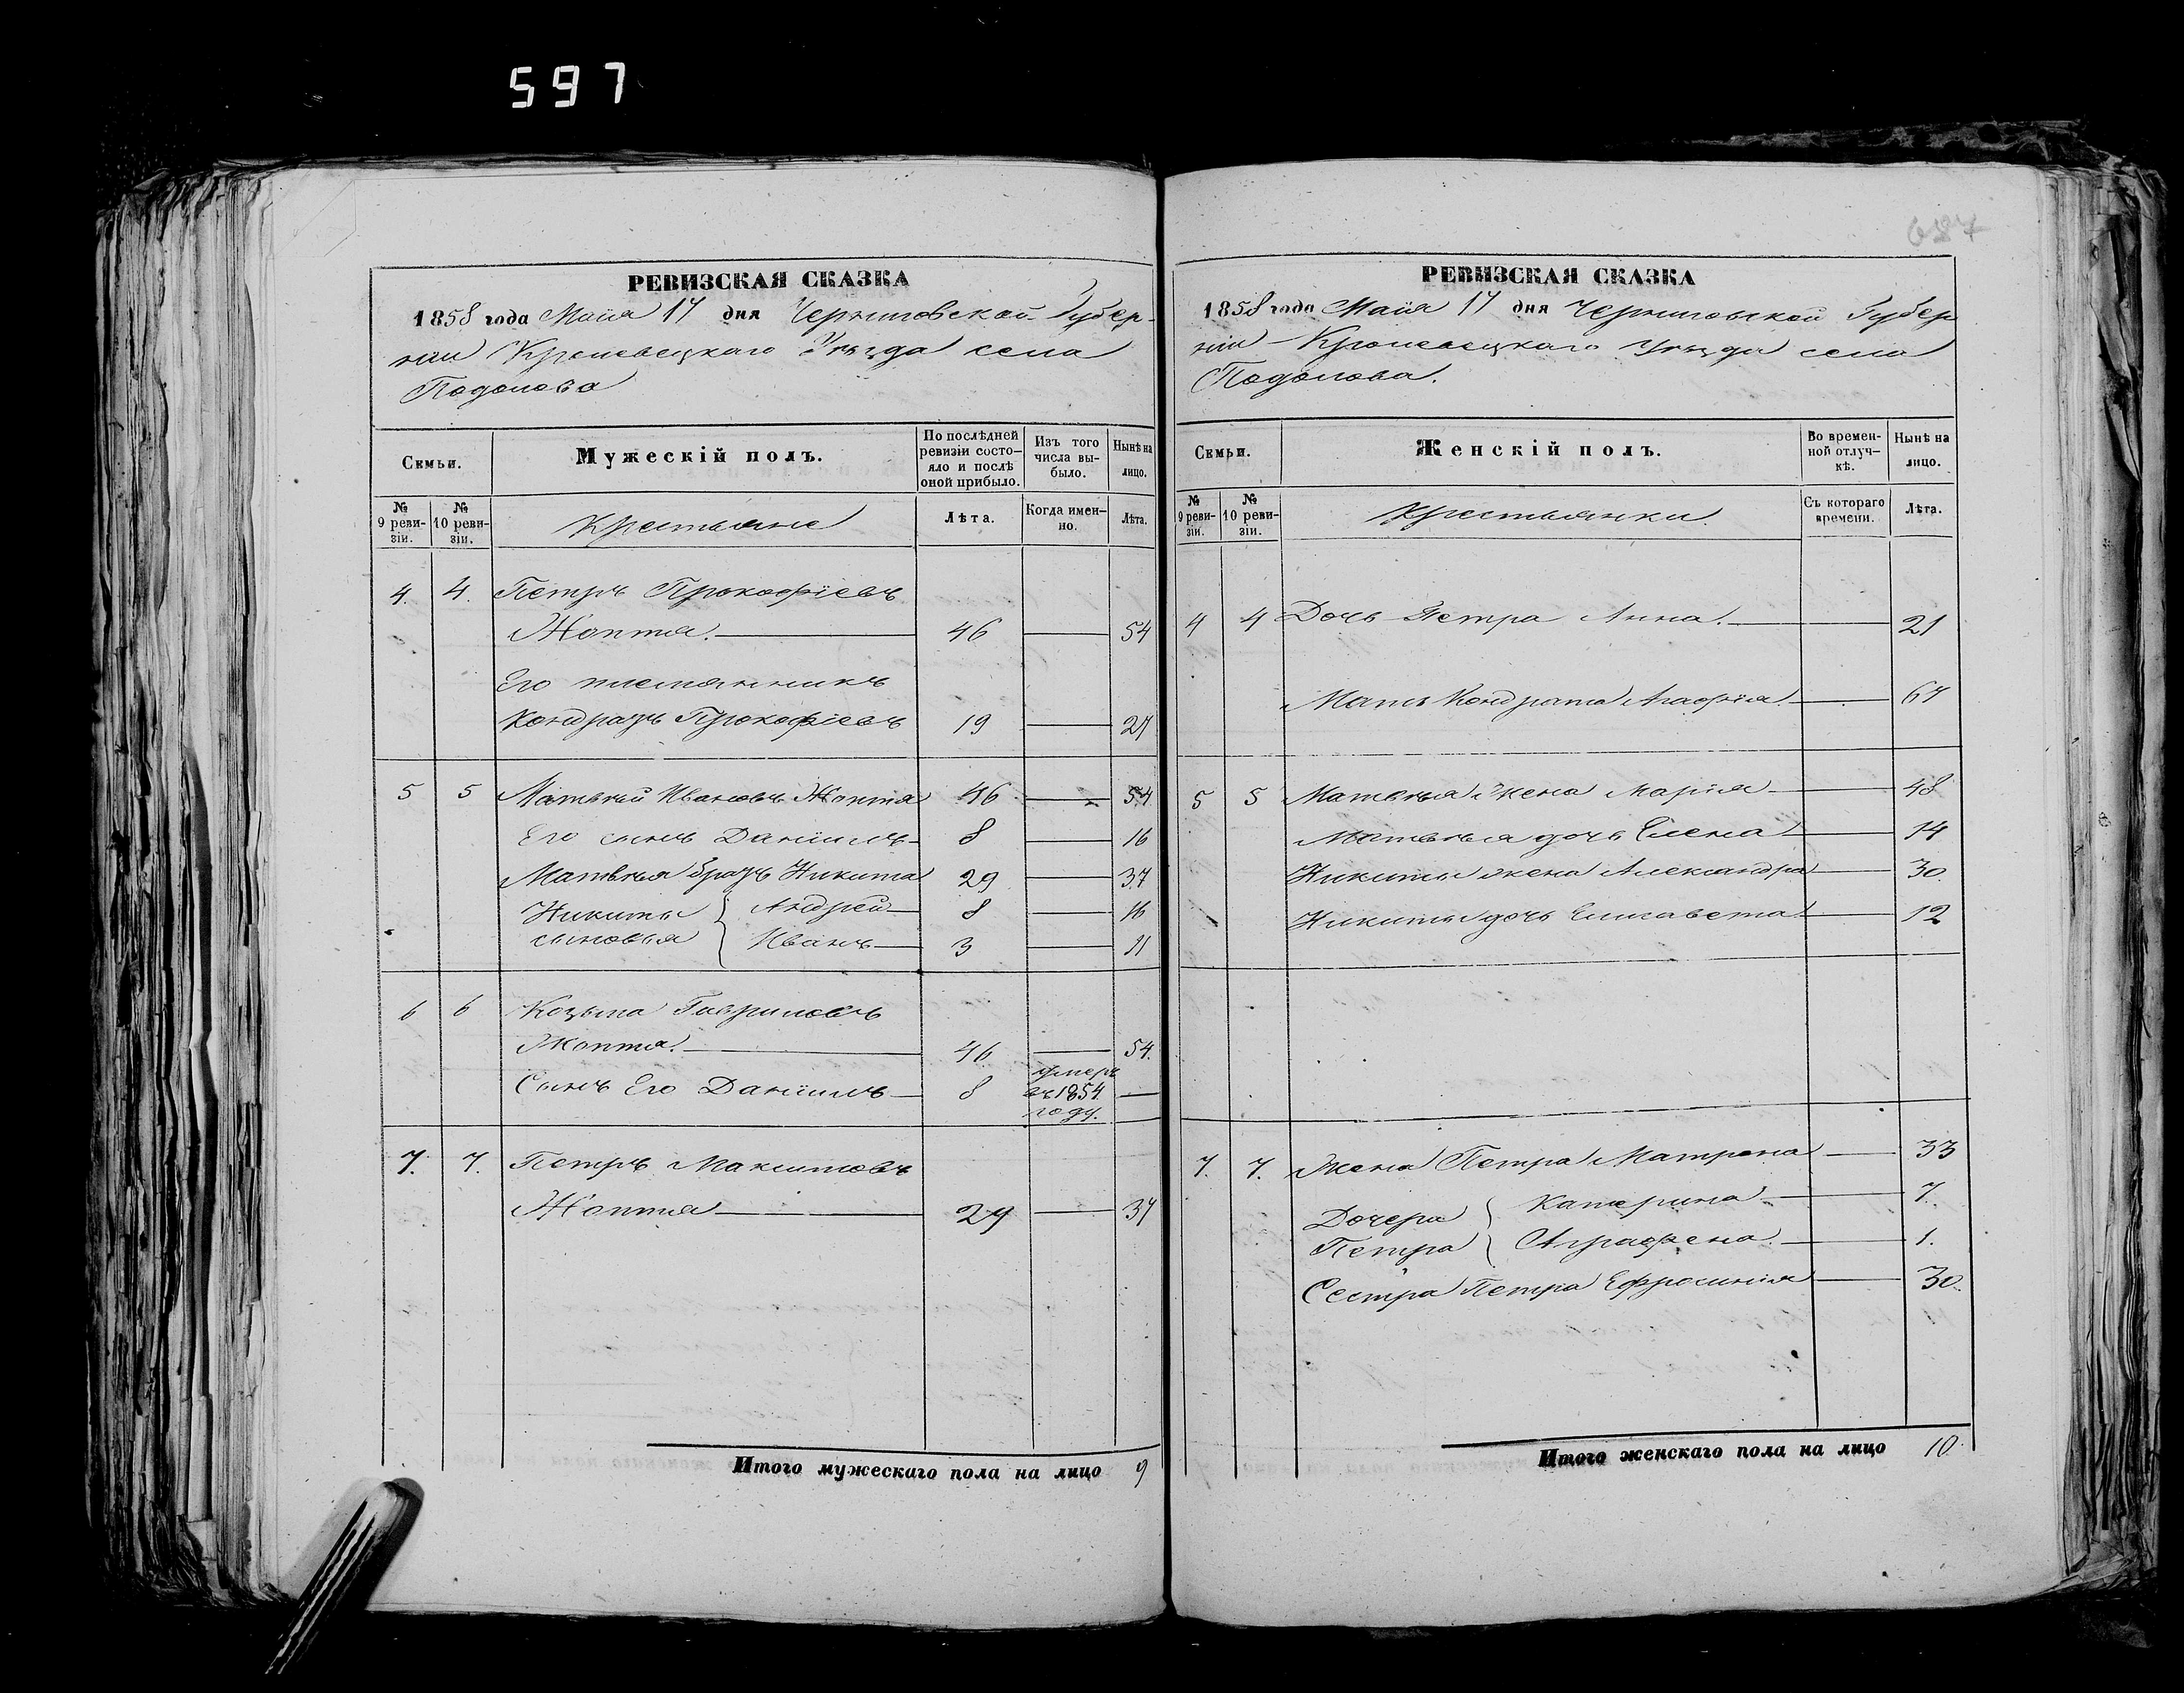 597
687
РЕВИЗСКАЯ СКАЗКА
1858 года Маія 17 дня Черниговской Губер-
ніи Кролевецкаго Уѣзда села
Подолова
Семьи.
Мужескій полъ.
По послѣдней ревизіи состо-яло и послѣ оной прибыло.
Изъ того числа вы-было.
Нынѣ на лицо.
№ 9 реви-зіи.
№ 10 реви-зіи.
Крестьяне
Лѣта.
Когда имен-но.
Лѣта.
4. 4. Петръ Прокофіевъ
Жопта. 46 54
Его племянникъ
Кондратъ Прокофіевъ 19 27
5 5 Матвѣй Ивановъ Жопта 46 54
Его сынъ Даніилъ 8 16
Матвѣя братъ Никита 29 37
Никиты сыновья { Андрей 8 16
Иванъ 3 11
6 6 Козьма Гавриловъ
Жопта. 46 54.
Сынъ Его Даніилъ 8 умеръ въ 1854 году.
7. 7. Петръ Максимовъ
Жопта 29 37
Итого мужескаго пола на лицо 9
РЕВИЗСКАЯ СКАЗКА
1858 года Маія 17 дня Черниговской Губер
ніи Кролевецкаго Уѣзда села
Подолова.
Семьи.
Женскій полъ.
Во времен-ной отлуч-кѣ.
Нынѣ на лицо.
№ 9 реви-зіи.
№ 10 реви-зіи.
Крестьянки
Съ котораго времени.
Лѣта.
4 4 Дочь Петра Анна. 21
Мать Кондрата Агафія. 67
5 5 Матвѣя жена Марія 48
Матвѣя дочь Елена 14
Никиты жена Александра 30.
Никиты дочь Елисавета 12
7. 7. Жена Петра Матрона 33
Дочери Петра { Катерина 7.
Аграфена. 1.
Сестра Петра Ефросинія 30.
Итого женскаго пола на лицо 10.